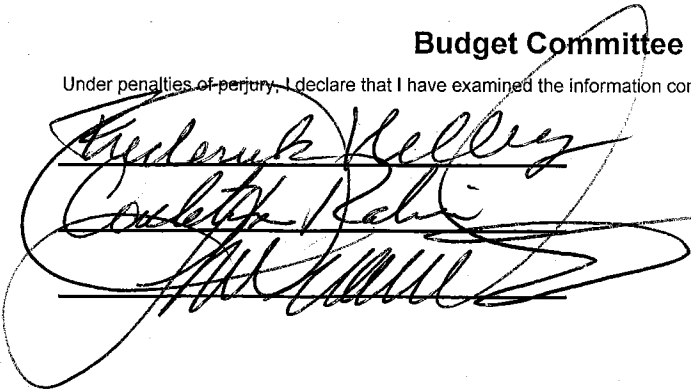 Budget Committee
Under penalties of perjury, I declare that I have examined the information con
Frederick Kelley
Carleton